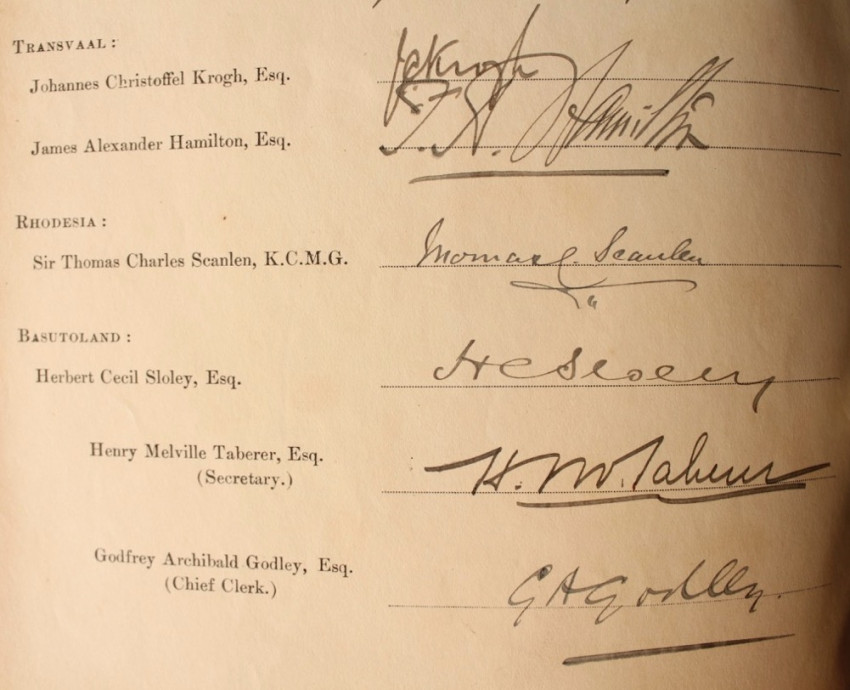 TRANSVAAL:
Johannes Christoffel Krogh, Esq. JCKrogh
James Alexander Hamilton, Esq. J. A. Hamilton
RHODESIA:
Sir Thomas Charles Scanlen, K.C.M.G. Thomas C. Scanlen
BASUTOLAND:
Herbert Cecil Sloley, Esq. H C Sloley
Henry Melville Taberer, Esq. H. M. Taberer
(Secretary.)
Godfrey Archibald Godley, Esq. G A Godley.
(Chief Clerk.)